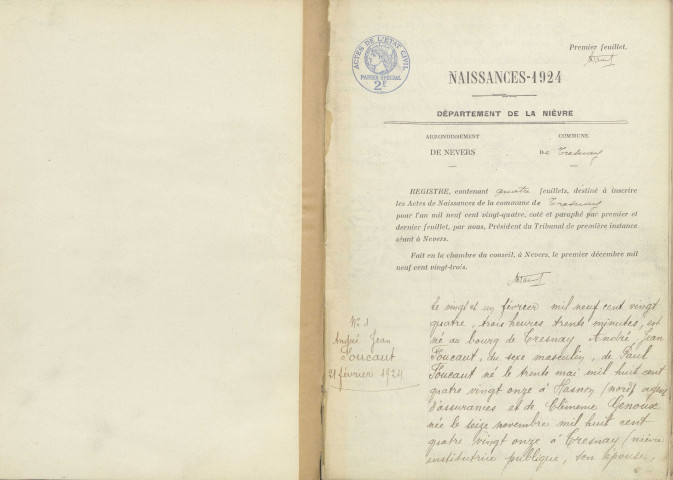 Premier feuillet.
ACTES DE L'ÉTAT CIVIL
PAPIER SPÉCIAL
2F
NAISSANCES-1924
DÉPARTEMENT DE LA NIÈVRE
ARRONDISSEMENT
DE NEVERS
COMMUNE
DE Tresnay
REGISTRE, contenant quatre feuillets, destiné à inscrire
les Actes de Naissances de la commune de Tresnay
pour l'an mil neuf cent vingt-quatre, coté et paraphé par premier et
dernier feuillet, par nous, Président du Tribunal de première instance
séant à Nevers.
Fait en la chambre du conseil, à Nevers, le premier décembre mil
neuf cent vingt-trois.
N° 1
André Jean
Foucaut
21 février 1924
Le vingt et un février mil neuf cent vingt
quatre, trois heures trente minutes, est
né au bourg de Tresnay André Jean
Foucaut, du sexe masculin, de Paul
Foucaut né le trente mai mil huit cent
quatre vingt onze à Hasnon (nord) agent
d'assurances et de Clémence Genoux
née le seize novembre mil huit cent
quatre vingt onze à Tresnay (nièvre
institutrice publique, son épouse,